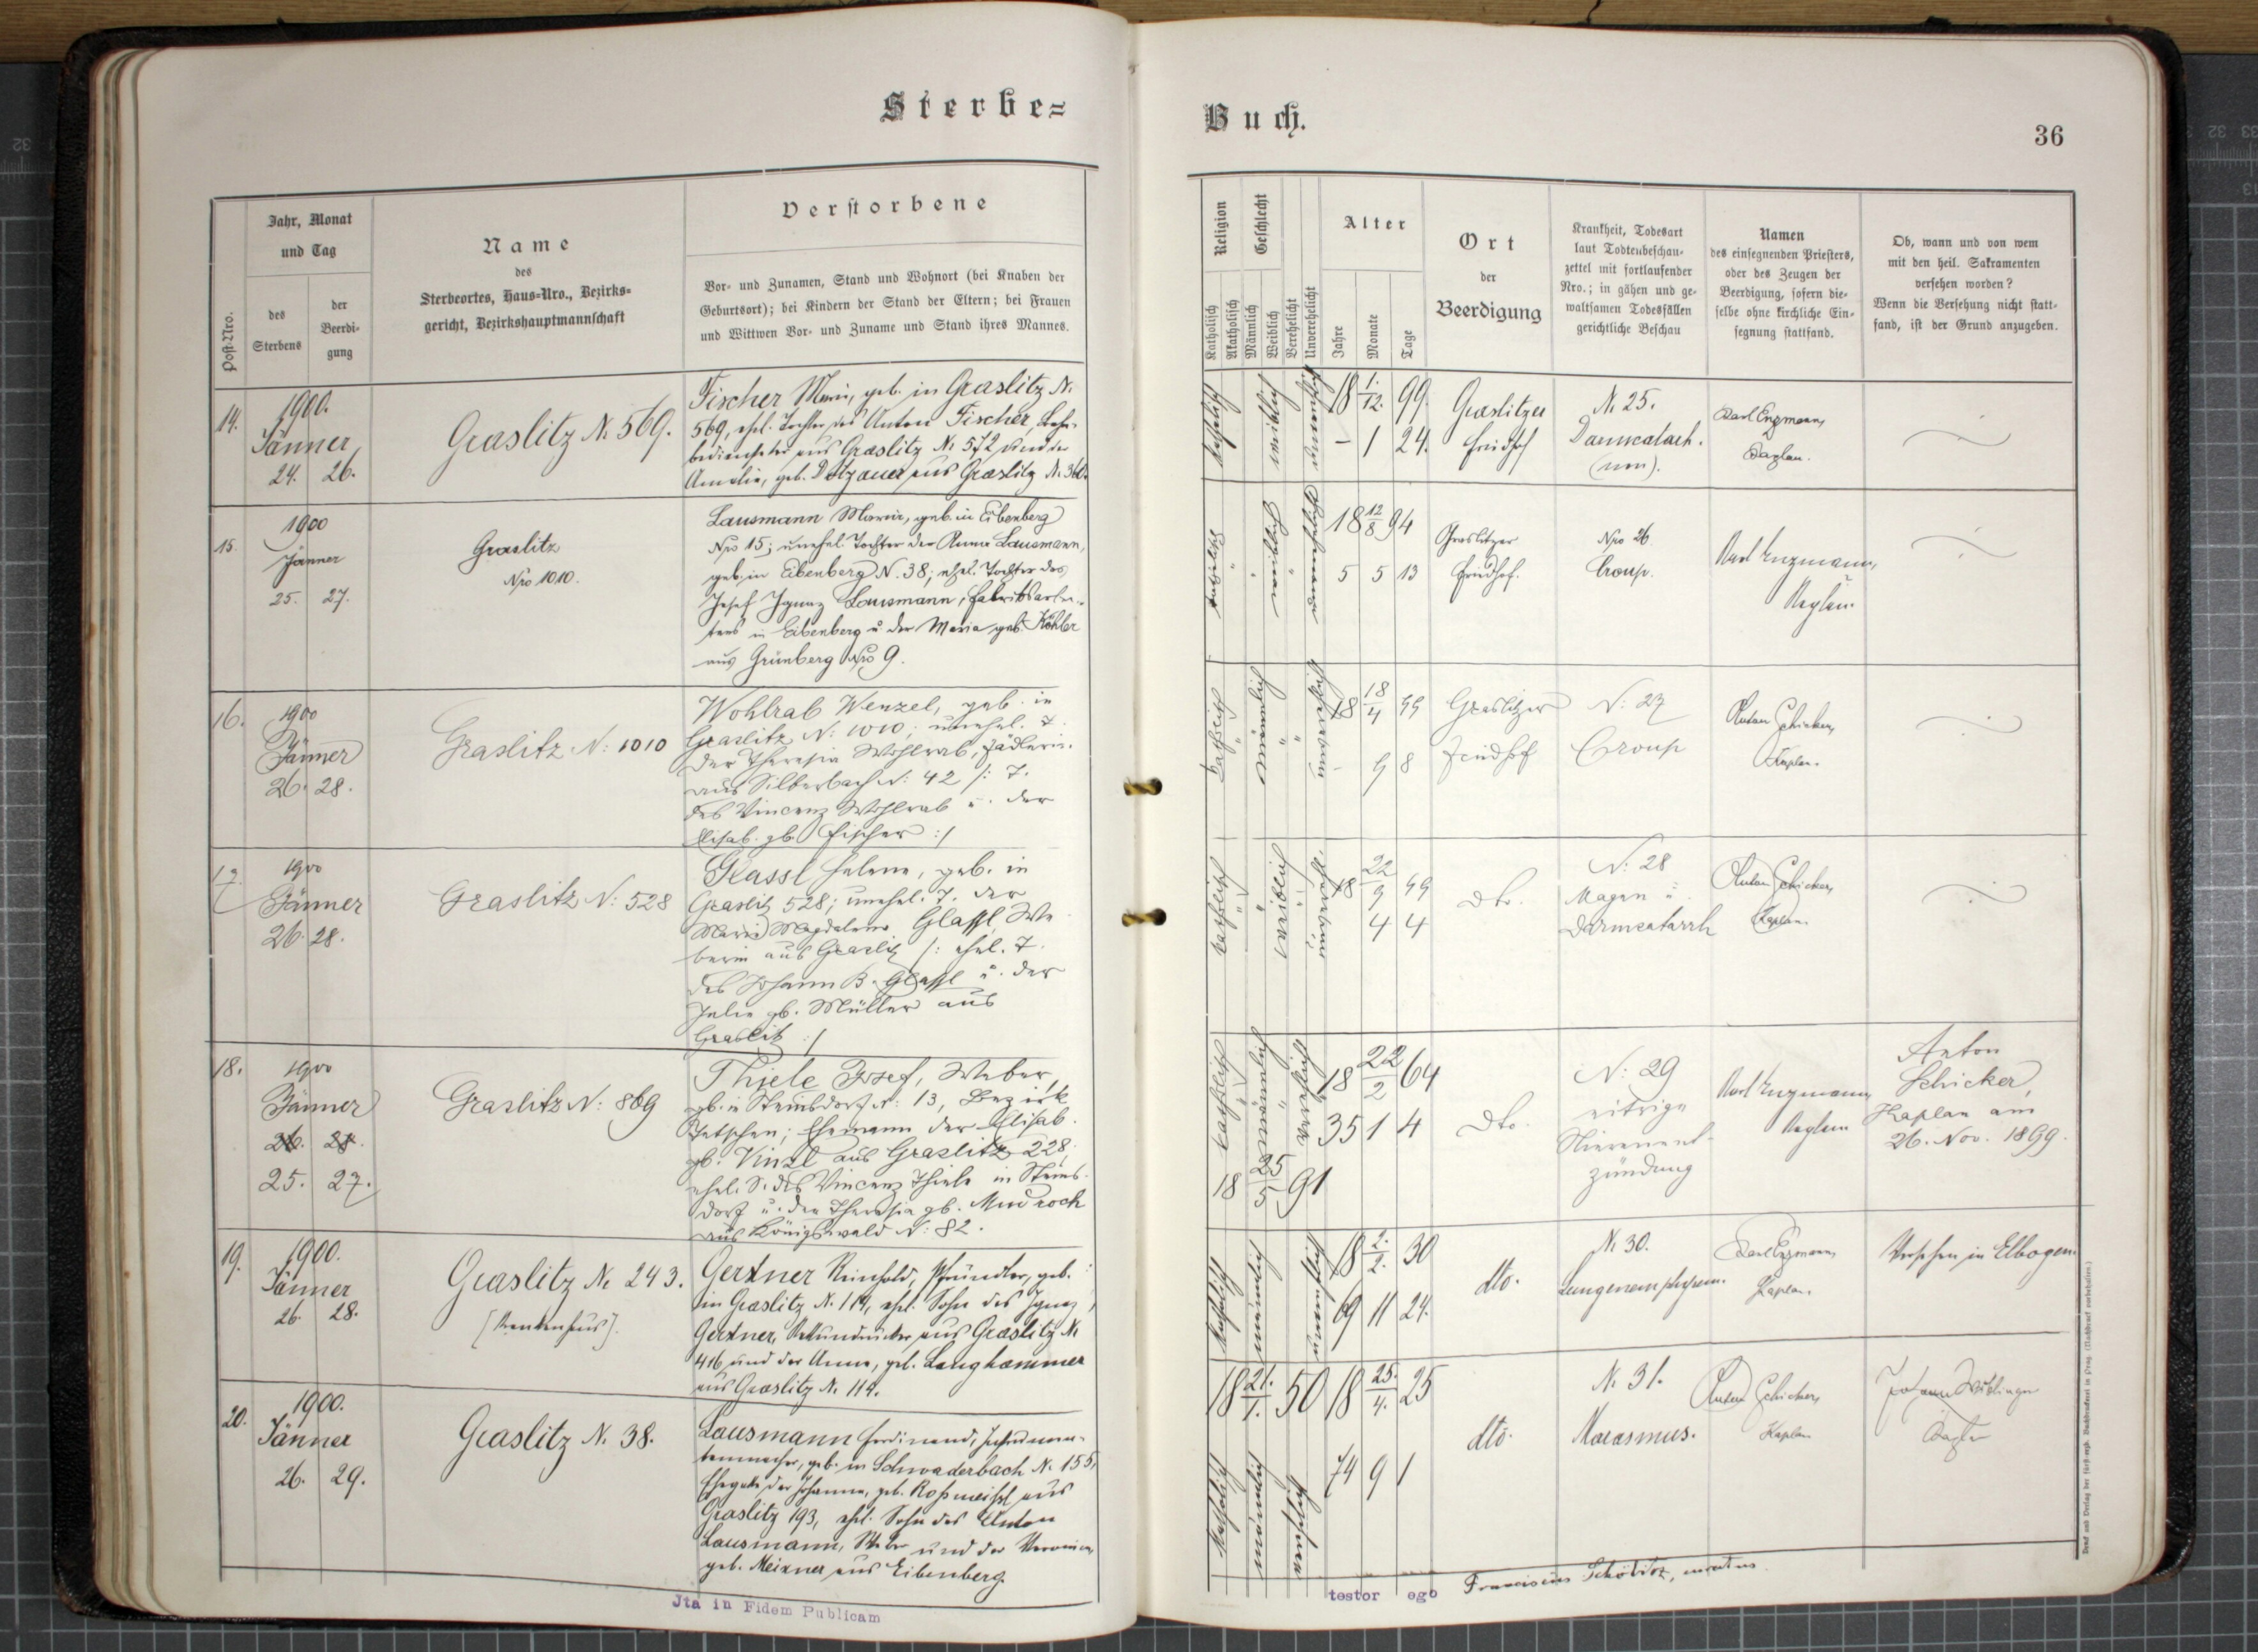 Sterbe=
Post-Nro.
Jahr, Monat
und Tag
des
Sterbens
der
Beerdi-
gung
Name
des
Sterbeortes, Haus-Nro., Bezirks=
gericht, Bezirkshauptmannschaft
Verstorbene
Vor- und Zunamen, Stand und Wohnort (bei Knaben der
Geburtsort); bei Kindern der Stand der Eltern; bei Frauen
und Wittwen Vor- und Zuname und Stand ihres Mannes.
14.
1900.
Jänner
24. 26.
Graslitz N. 569.
Fischer Marie, geb. in Graslitz N.
569, ehel. Tochter des Anton Fischer, Bahn-
bediensteter aus Graslitz N. 572 und der
Amalia, geb. Dotzauer aus Graslitz N.
15.
1900
Jänner
25. 27.
Graslitz
Nro 1010.
Lausmann Maria, geb. in Eibenberg
Nro 15; unehel. Tochter der Anna Lausmann,
geb. in Eibenberg N. 38; ehel. Tochter des
Josef Ignaz Lausmann, Fabriksarbei-
ters in Eibenberg u der Maria geb. Köhler
aus Grünberg Nro 9.
16.
1900
Jänner
26. 28.
Graslitz N: 1010
Wohlrab Wenzel, geb. in
Graslitz N: 1010; unehel.
der Theresia Wohlrab, Fädlerin
aus Silberbach N: 42 /: T.
des Vincenz Wohlrab u. der
Elisab. gb. Fischer :/
17.
1900
Jänner
26. 28.
Graslitz N: 528
Glassl Helene, geb. in
Graslitz 528; unehel. T. der
Maria Magdalena Glassl, We
berin aus Graslitz /: ehel. T.
des Johann B. Glassl u. der
Julie gb. Müller aus
Graslitz :/
18.
1900
Jänner
26. 28.
25. 27.
Graslitz N: 869
Thiele Josef, Weber,
gb. in Steinsdorf N: 13, Bezirk
Tetschen; Ehemann der Elisab.
gb. Vinzl aus Graslitz 228;
ehel. S. des Vincenz Thiele in Steins-
dorf u. der Theresia gb. Mudroch
aus Königswald N: 82.
19.
1900.
Jänner
26. 28.
Graslitz N. 243.
[Krankenhaus].
Gertner Reinhold, Pfründler, geb.
in Graslitz N. 114, ehel. Sohn des Ignaz
Gertner, aus Graslitz N.
416 und der Anna, geb. Langhammer
aus Graslitz N. 114.
20.
1900.
Jänner
26. 29.
Graslitz N. 38.
Lausmann Ferdinand, Instrumen-
tenmacher, geb. in Schwaderbach N. 155,
Ehegatte der Johanna, geb. Roßmeißl aus
Graslitz 193, ehel. Sohn des Anton
Lausmann, Weber und der Veronica,
geb. Meixner aus Eibenberg.
Jta in Fidem Publicam
Buch.
36
Religion
Katholisch
Akatholisch
Geschlecht
Männlich
Weiblich
Verehelicht
Unverehelicht
Alter
Jahre
Monate
Tage
Ort
der
Beerdigung
Krankheit, Todesart
laut Todtenbeschau-
zettel mit fortlaufender
Nro.; in gähen und ge-
waltsamen Todesfällen
gerichtliche Beschau
Namen
des einsegnenden Priesters,
oder des Zeugen der
Beerdigung, sofern die-
selbe ohne kirchliche Ein-
segnung stattfand.
Ob, wann und von wem
mit den heil. Sakramenten
versehen worden?
Wenn die Versehung nicht statt-
fand, ist der Grund anzugeben.
katholisch
weiblich
unverehelicht
18 1./12. 99
- 1 24.
Graslitzer
Friedhof
N. 25.
Darmcatarh.
Karl Enzmann,
Kaplan.
katholisch
weiblich
unverehelicht
18 12/8 94
5 5 13
Graslitzer
Friedhof.
Nro 26
Croup.
Karl Enzmann,
Kaplan.
katholisch
männlich
unverehelicht
18 18/4 99
- 9 8
Graslitzer
Friedhof
N: 27
Croup
Anton Schicker,
Kaplan.
katholisch
weiblich
unverehel.
18 22/9 99
4 4
dto.
N: 28
Magen u
Darmcatarrh
Anton Schicker,
Kaplan.
katholisch
männlich
verehelicht
18 22/2 64
35 1 4
18 25/5 91
dto.
N: 29
eitrige
Nierenent-
zündung
Karl Enzmann
Kaplan
Anton
Schicker,
Kaplan am
26. Nov. 1899.
katholisch
männlich
unverehelicht
18 2./2. 30
69 11 24.
dto.
N. 30.
Lungenemphysem.
Karl Enzmann,
Kaplan.
Versehen in Elbogen.
18 21./1. 50
katholisch
männlich
verehelicht
18 25./4. 25
74 9 1
dto.
N. 31.
Marasmus.
Anton Schicker,
Kaplan
Johann
Kaplan
testor ego
Franciscus
Druck und Verlag der fürst-erzb. Buchdruckerei in Prag. (Nachdruck vorbehalten.)